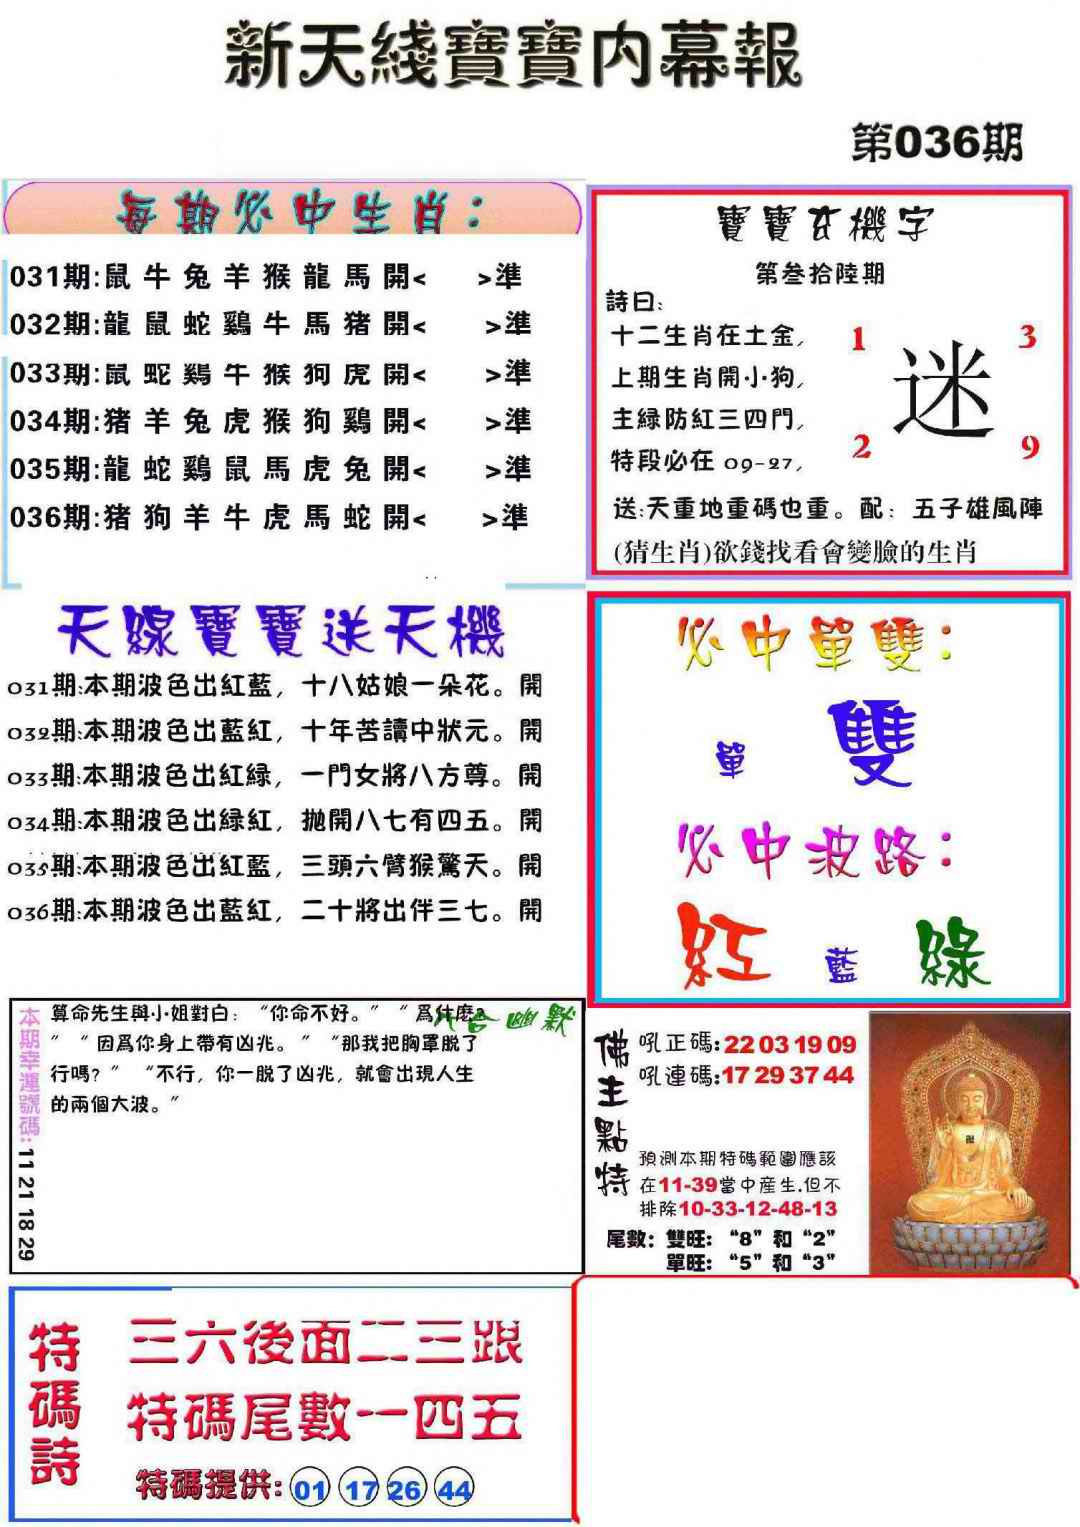 新天綫寶寶内幕報
第036期
每期必中生肖：
031期:鼠牛兔羊猴龍馬開< >準
032期:龍鼠蛇鷄牛馬猪開< >準
033期:鼠蛇鷄牛猴狗虎開< >準
034期:猪羊兔虎猴狗鷄開< >準
035期:龍蛇鷄鼠馬虎兔開< >準
036期:猪狗羊牛虎馬蛇開< >準
寶寶玄機字
第叁拾陸期
詩曰:
十二生肖在土金,
上期生肖開小狗,
主緑防紅三四門,
特段必在 09-27,
1 3
迷
2 9
送:天重地重碼也重。配：五子雄風陣
(猜生肖)欲錢找看會變臉的生肖
天線寶寶送天機
031期:本期波色出紅藍，十八姑娘一朵花。開
032期:本期波色出藍紅，十年苦讀中狀元。開
033期:本期波色出紅緑，一門女將八方尊。開
034期:本期波色出緑紅，抛開八七有四五。開
035期:本期波色出紅藍，三頭六臂猴驚天。開
036期:本期波色出藍紅，二十將出伴三七。開
必中單雙：
單 雙
必中波路：
紅 藍 綠
本期幸運號碼: 11 21 18 29
六合幽默
算命先生與小姐對白：“你命不好。”“爲什麽?
”“因爲你身上帶有凶兆。”“那我把胸罩脱了
行嗎？”“不行，你一脱了凶兆，就會出現人生
的兩個大波。”
佛主點特
吼正碼:22 03 19 09
吼連碼:17 29 37 44
預測本期特碼範圍應該
在11-39當中産生.但不
排除10-33-12-48-13
尾數：雙旺：“8”和“2”
單旺：“5”和“3”
特碼詩
三六後面二三跟
特碼尾數一四五
特碼提供: 01 17 26 44